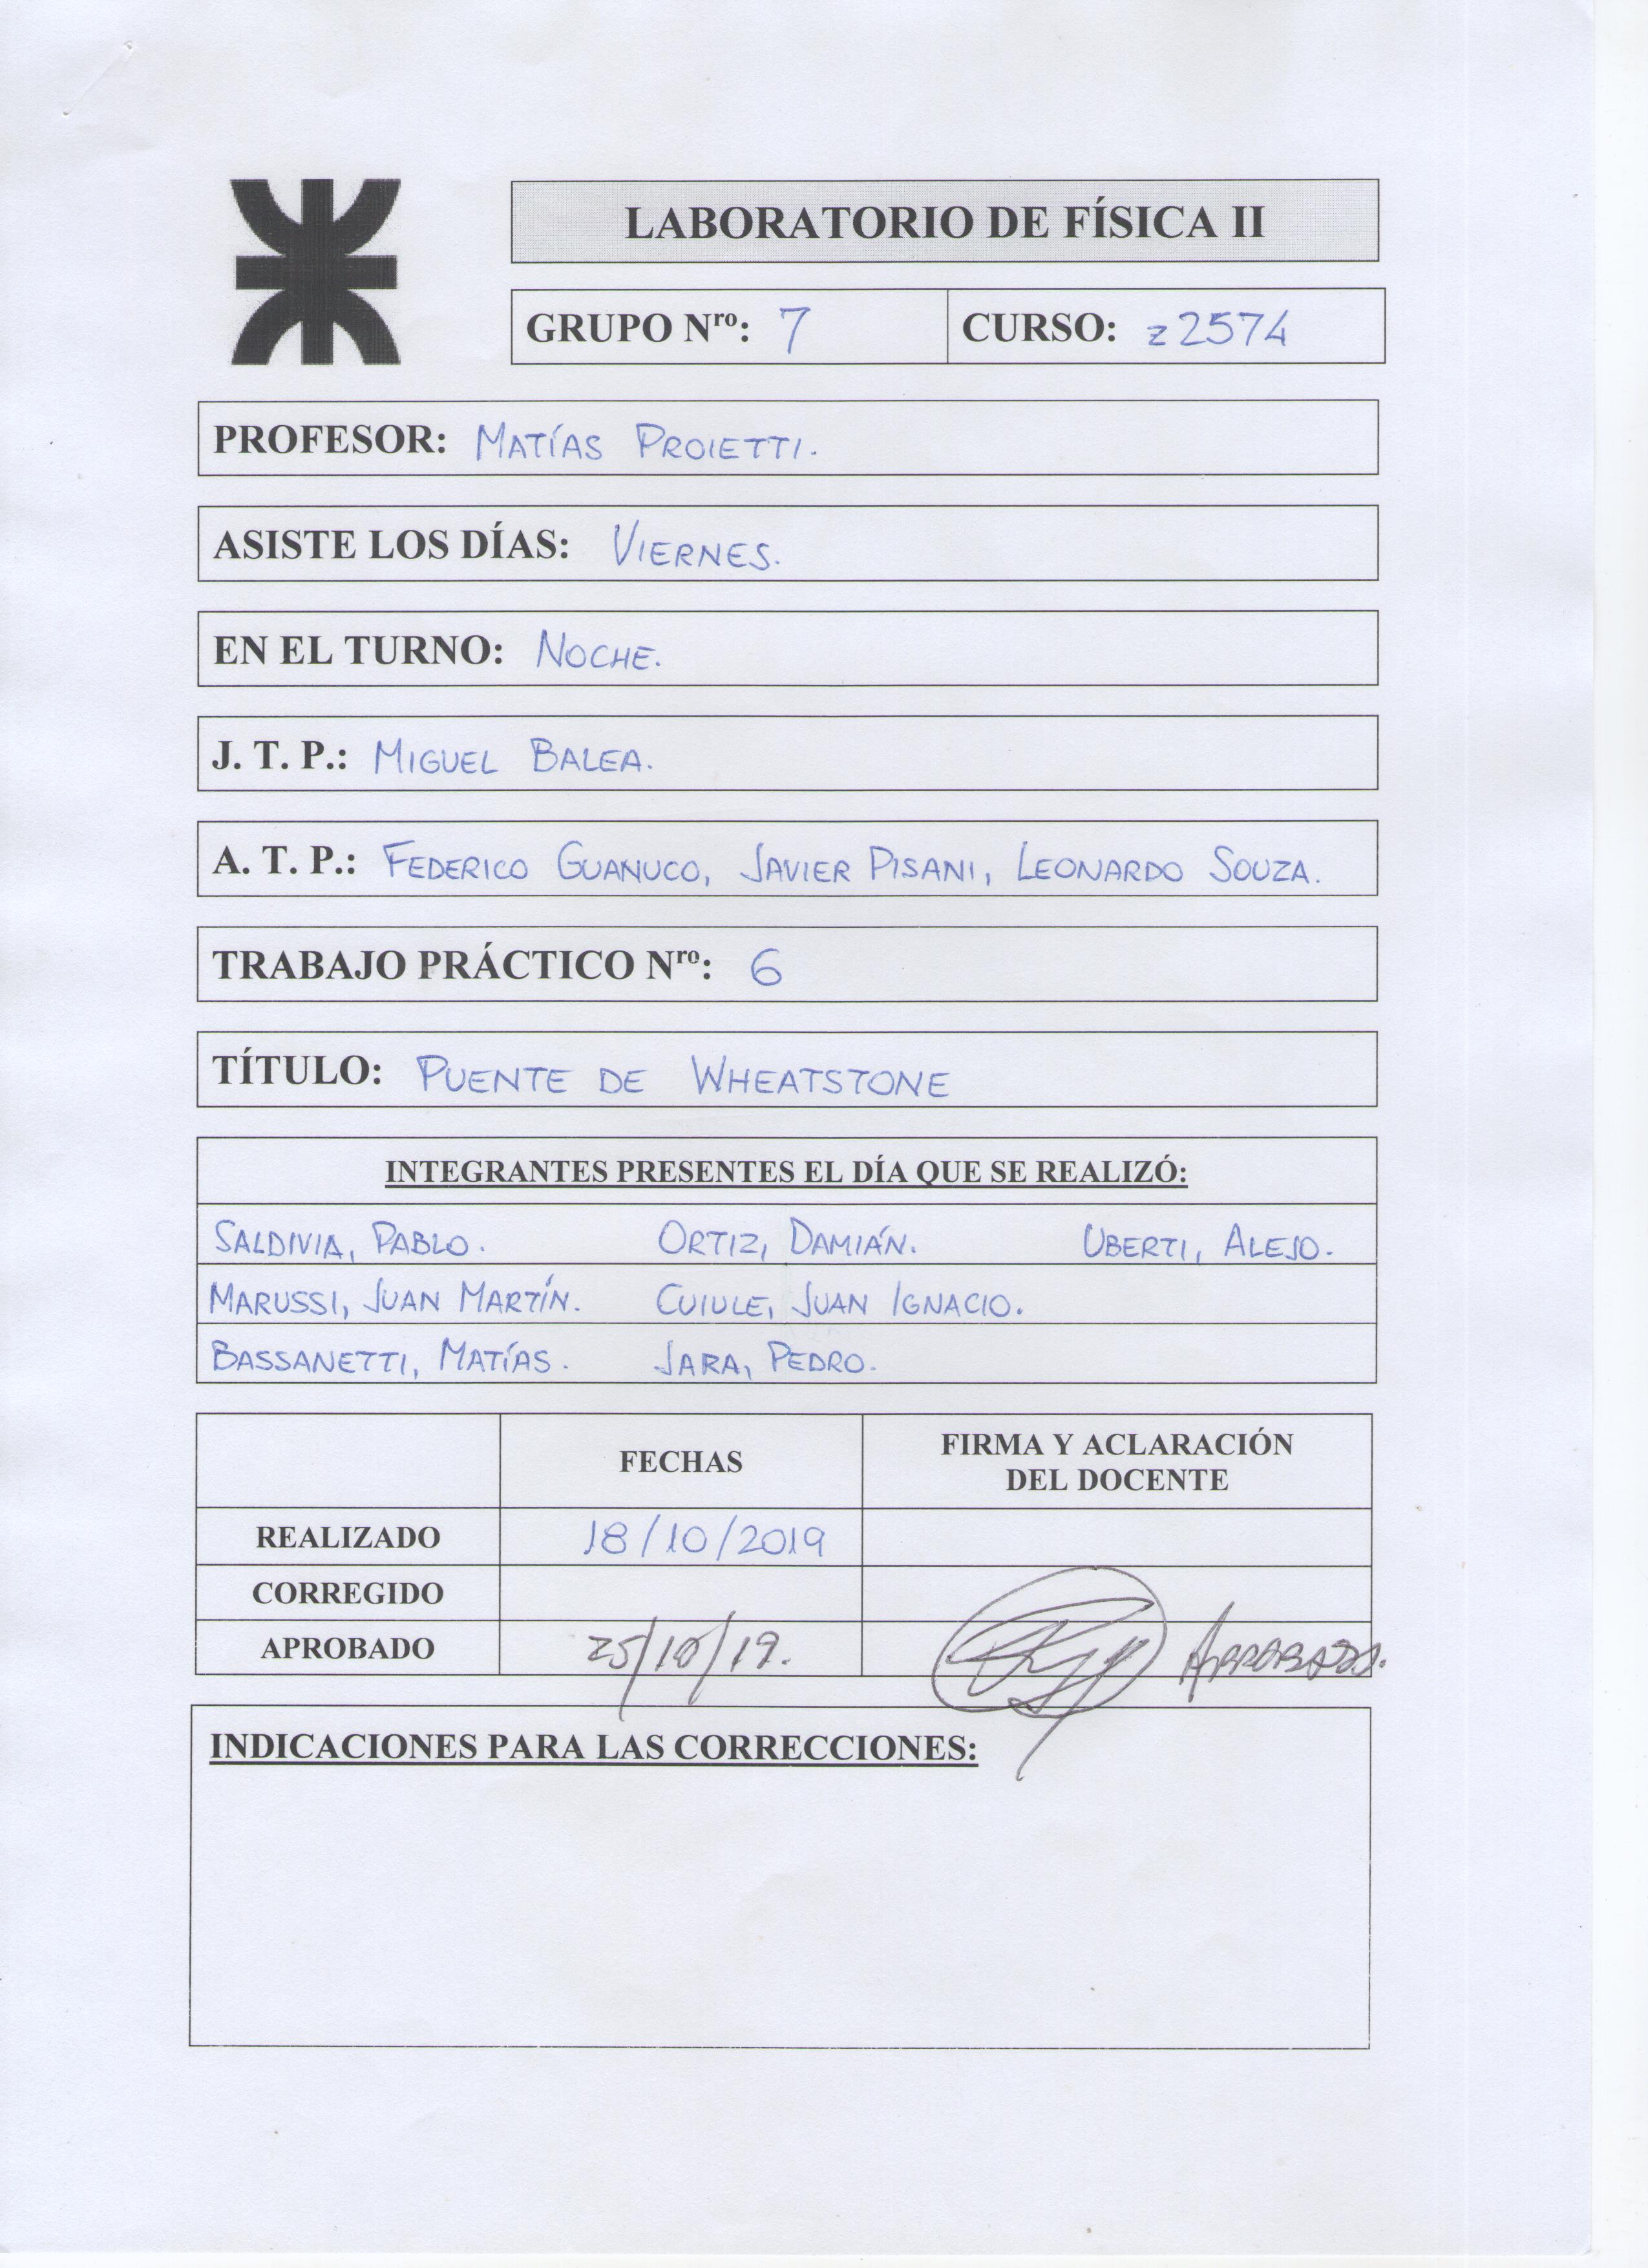 LABORATORIO DE FÍSICA II
GRUPO Nro: 7 CURSO: z2574
PROFESOR: MATÍAS PROIETTI.
ASISTE LOS DÍAS: VIERNES.
EN EL TURNO: NOCHE.
J. T. P.: MIGUEL BALEA.
A. T. P.: FEDERICO GUANUCO, JAVIER PISANI, LEONARDO SOUZA.
TRABAJO PRÁCTICO Nro: 6
TÍTULO: PUENTE DE WHEATSTONE
INTEGRANTES PRESENTES EL DÍA QUE SE REALIZÓ:
SALDIVIA, PABLO. ORTIZ, DAMIÁN. UBERTI, ALEJO.
MARUSSI, JUAN MARTÍN. CUIULE, JUAN IGNACIO.
BASSANETTI, MATÍAS. JARA, PEDRO.
FECHAS FIRMA Y ACLARACIÓN
DEL DOCENTE
REALIZADO 18/10/2019
CORREGIDO
APROBADO 25/10/19. APROBADO.
INDICACIONES PARA LAS CORRECCIONES: